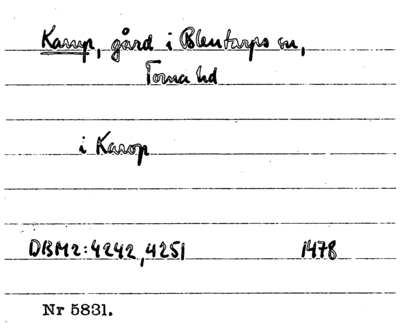 Karup, gård i Blentarps sn,
Torna hd
i Karop
DBM2:4242,4251 1478
Nr 5831.